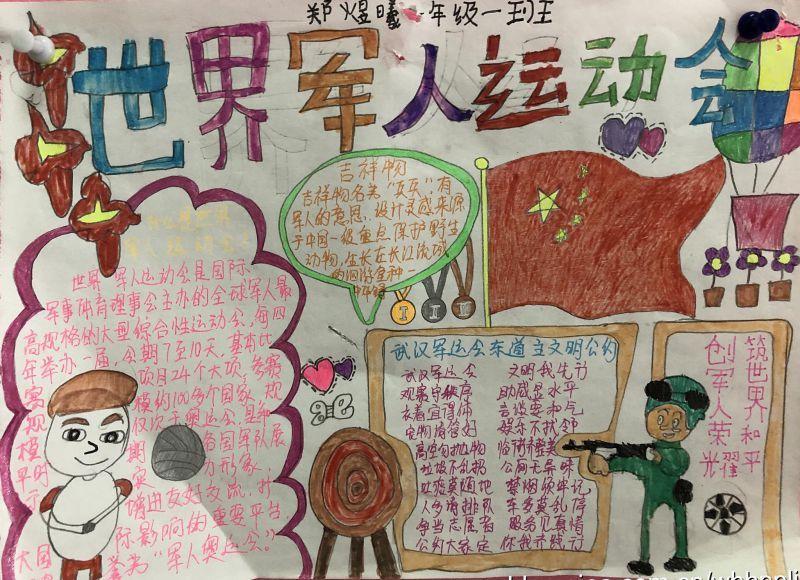 郑煜曦 一年级一班
世界军人运动会
什么是世界
军人运动会?
世界军人运动会是国际
军事体育理事会主办的全球军人最
高规格的大型综合性运动会,每四
年举办一届,会期7至10天,基本比
项目24个大项,参赛
规模约100多个国家,规
仅次于奥运会,是和
期各国军队展
力形象
增进友好交流,扩
际影响的重要平台
誉为“军人奥运会。”
吉祥物
吉祥物名为“兵兵”,有
军人的意思,设计灵感来源
于中国一级重点保护野生
动物,生长在长江流域
的洄游鱼种一
中华鲟
武汉军运会东道主文明公约
武汉军运会 文明我先行
观赛守秩序 助威显水平
衣着宜得体 言谈要和气
宠物请管好 娱乐不扰邻
高空勿抛物
垃圾不乱扔 公厕无异味
禁烟须牢记
人多请排队 车多莫乱停
争当志愿者 服务见真情
公约大家定 你我齐践行
筑世界和平
创军人荣光耀